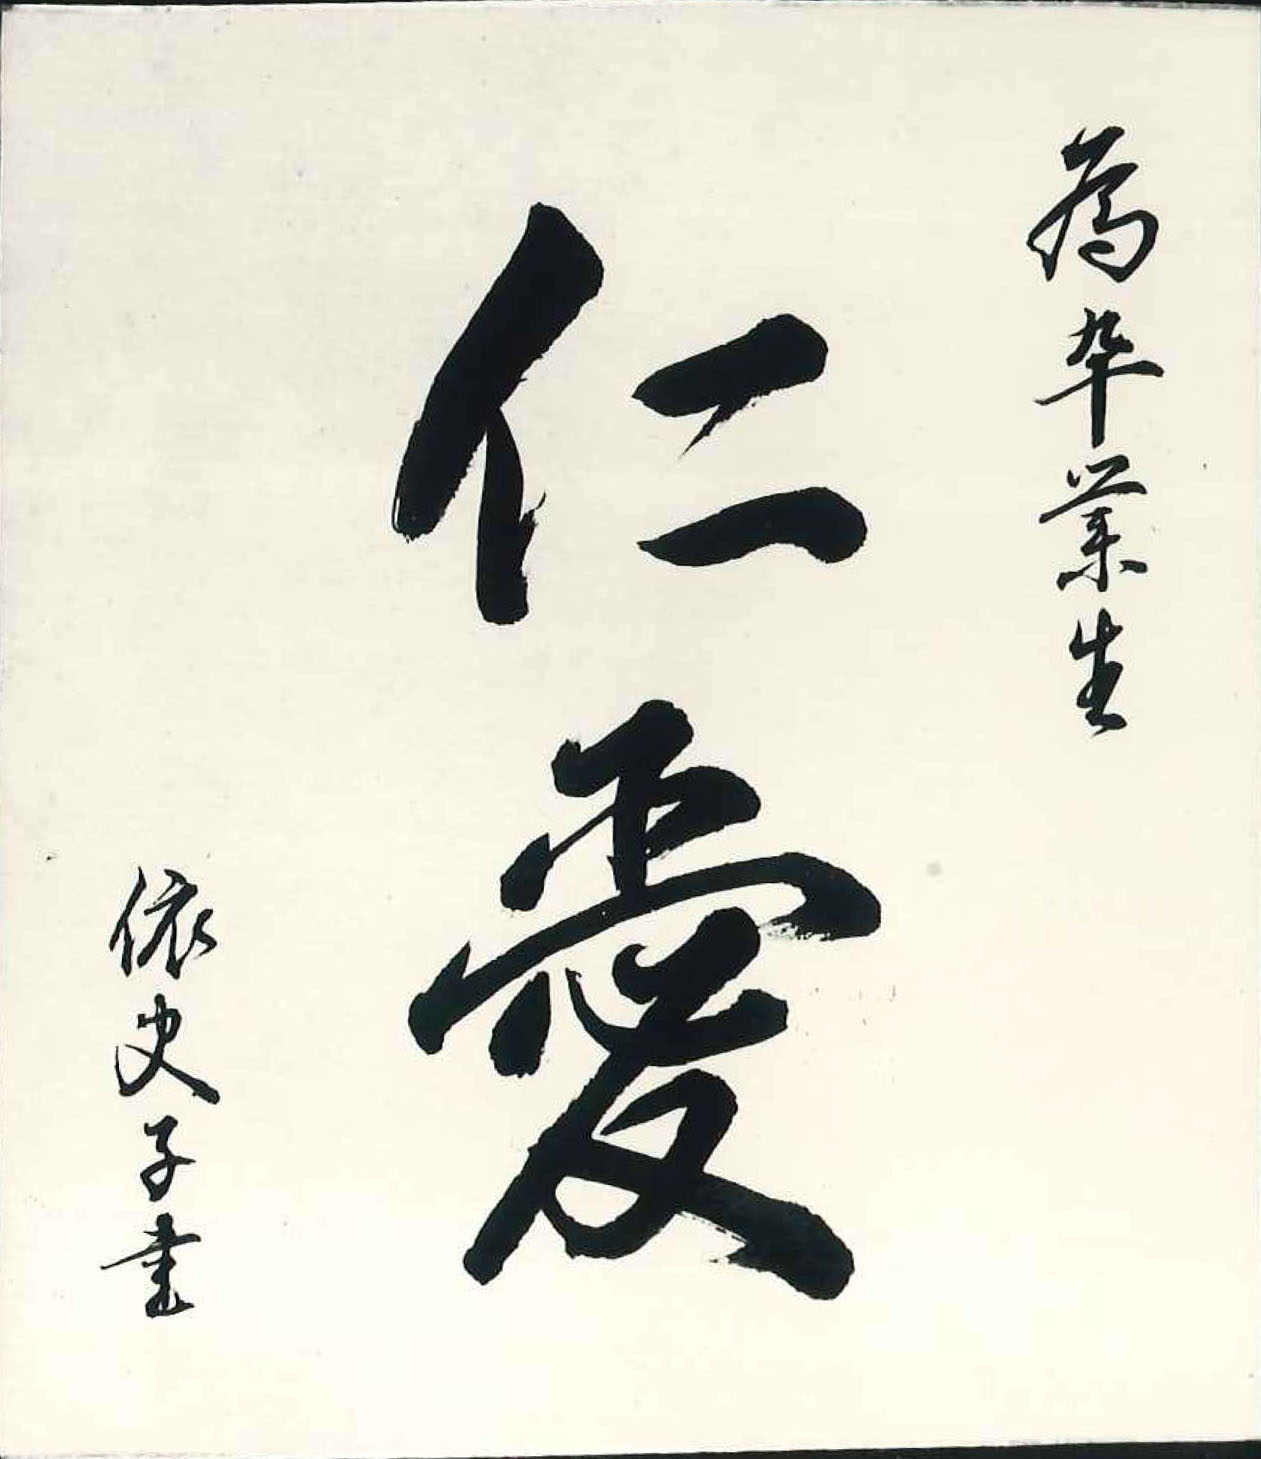 為卆業生
仁愛
依史子書